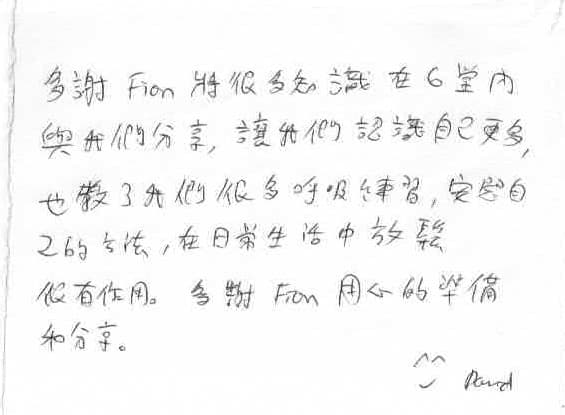 多謝 Fion 將很多知識在6堂內
與我們分享, 讓我們認識自己更多,
也教了我們很多呼吸練習, 安慰自
己的方法, 在日常生活中放鬆
很有作用。 多謝 Fion 用心的準備
和分享。
David